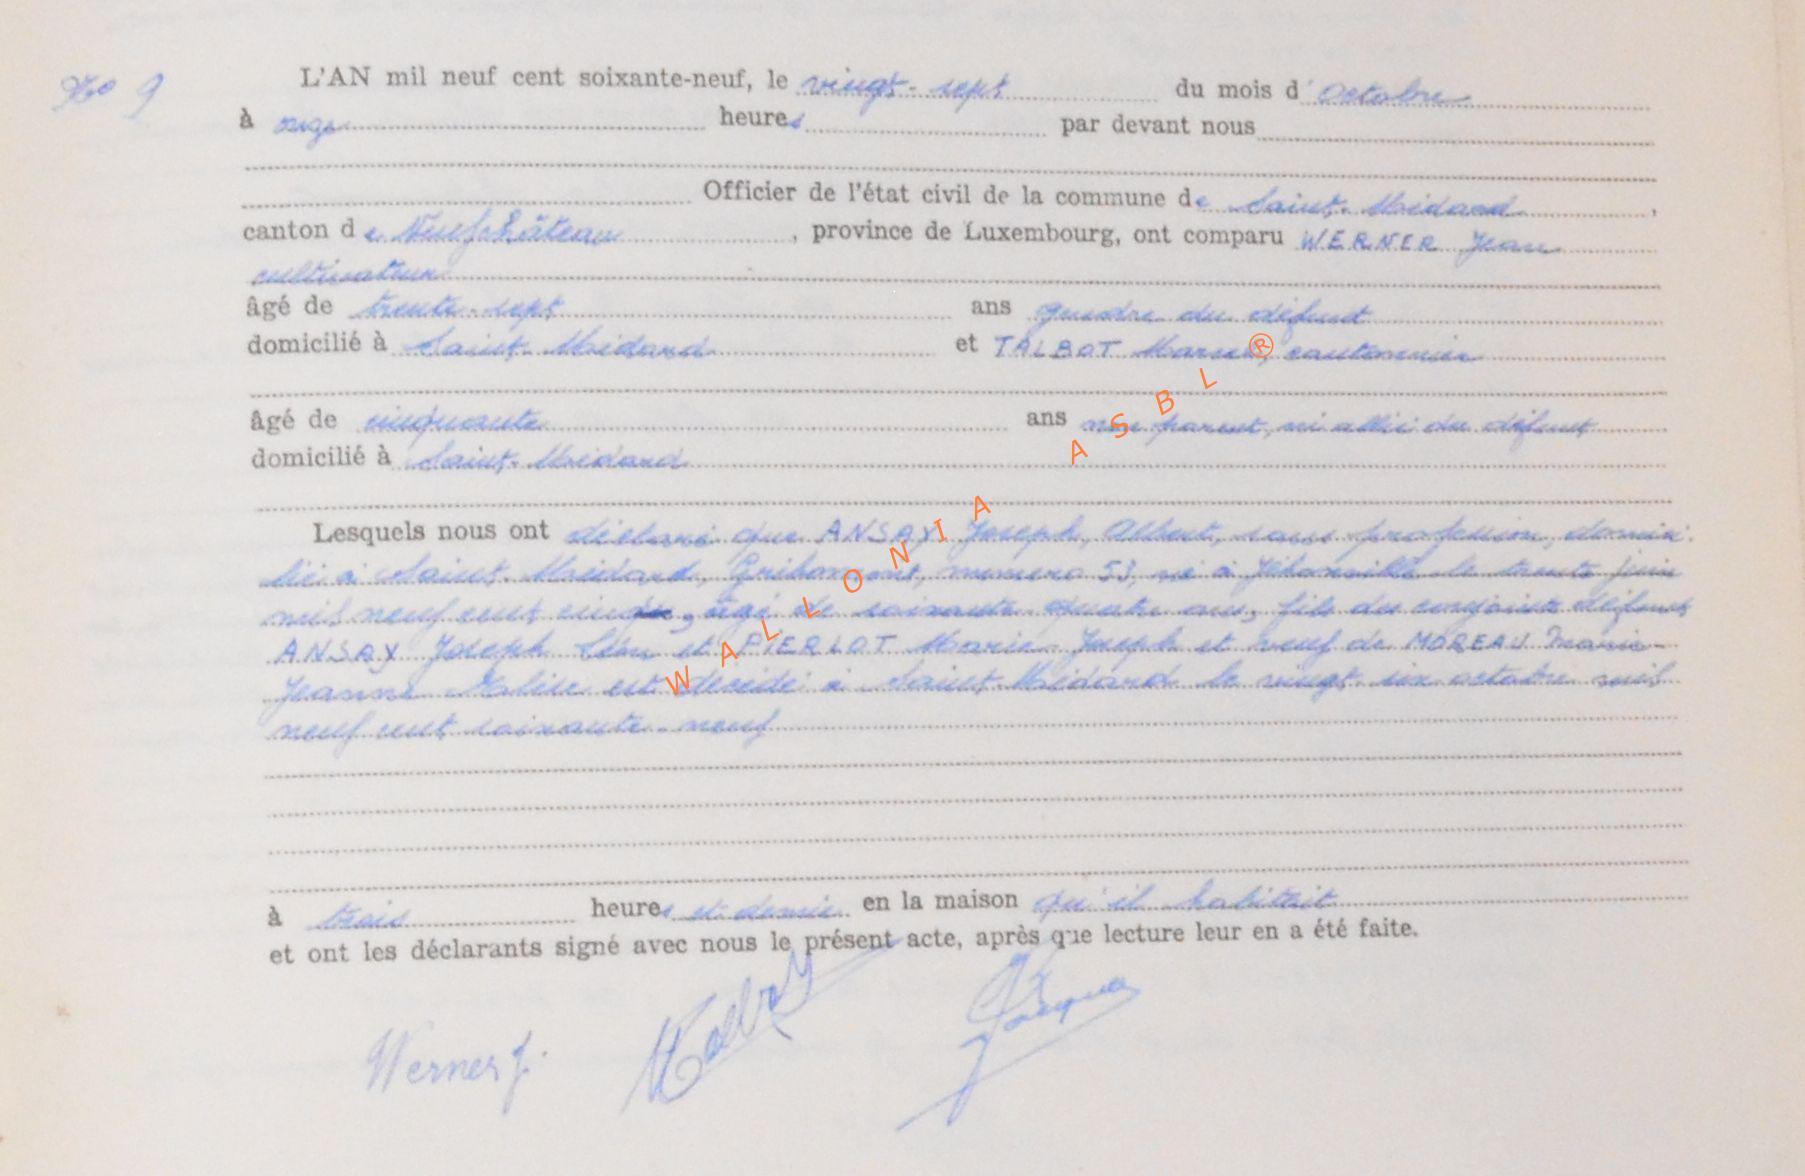 No 9
L'AN mil neuf cent soixante-neuf, le vingt-sept du mois d'octobre
à onze heures par devant nous
Officier de l'état civil de la commune de Saint-Médard,
canton de Neufchâteau, province de Luxembourg, ont comparu WERNER Jean
cultivateur
âgé de trente-sept ans gendre du défunt
domicilié à Saint-Médard et TALBOT Marcel, cantonnier
âgé de cinquante ans non parent, ni allié du défunt
domicilié à Saint-Médard
Lesquels nous ont déclaré que ANSAY Joseph, Albert, sans profession, domici-
lié à Saint-Médard, Gribomont, numéro 53, né à Jéhonville le trente juin
mil neuf cent cinq, âgé de soixante quatre ans, fils des conjoints défunts
ANSAY Joseph et PIERLOT Marie-Joseph et veuf de MOREAU Marie-
Jeanne est décédé à Saint-Médard le vingt-six octobre mil
neuf cent soixante-neuf
à trois heures et demie en la maison qu'il habitait
et ont les déclarants signé avec nous le présent acte, après que lecture leur en a été faite.
Werner J.
WALLONIA ASBL ®